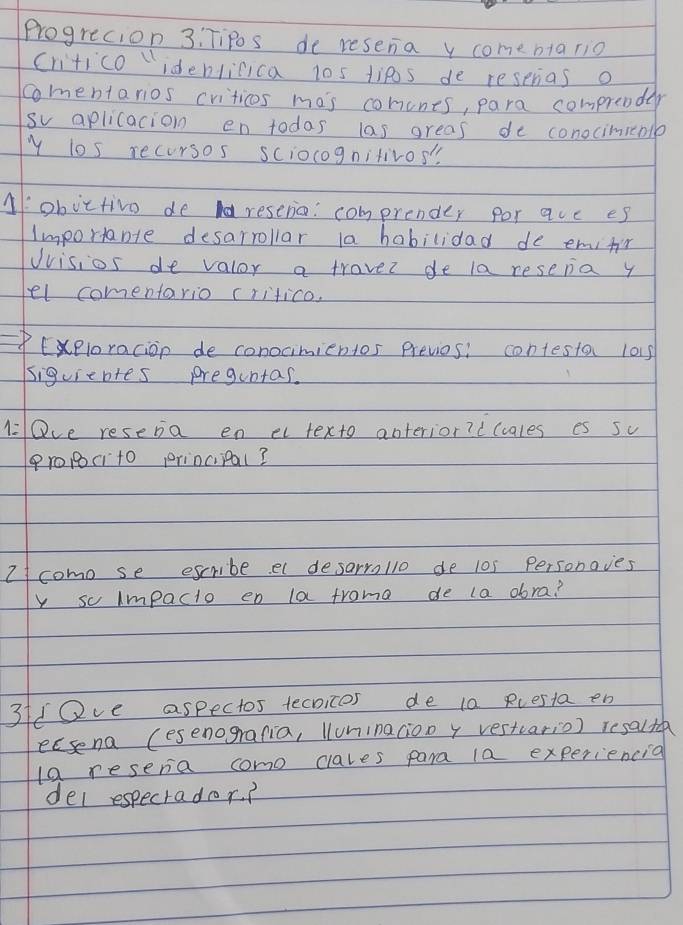 Progrecion 3: Tipos de reseña y comentario
critico "identifica los tipos de reseñas o
comentarios criticos más comunes, para comprender
su aplicacion en todas las areas de conocimiento
y los recursos sciocognitivos".
1: obvietivo de la reseña: comprender por que es
importante desarrollar la habilidad de emitir
Jvisios de valor a travez de la reseña y
el comentario critico.
=> Exploración de conocimientos previos: contesta las
siguientes preguntas.
1= Que reseña en el texto anterior? ¿cuales es su
propocito principal?
2= como se escribe el desarrollo de los Personajes
y su impacto en la trama de la obra?
3= ¿Que aspectos tecnicos de la puesta en
ecsena (esenografia, iluminacion y vestuario) resalta
la reseña como claves para la experiencia
del espectador?